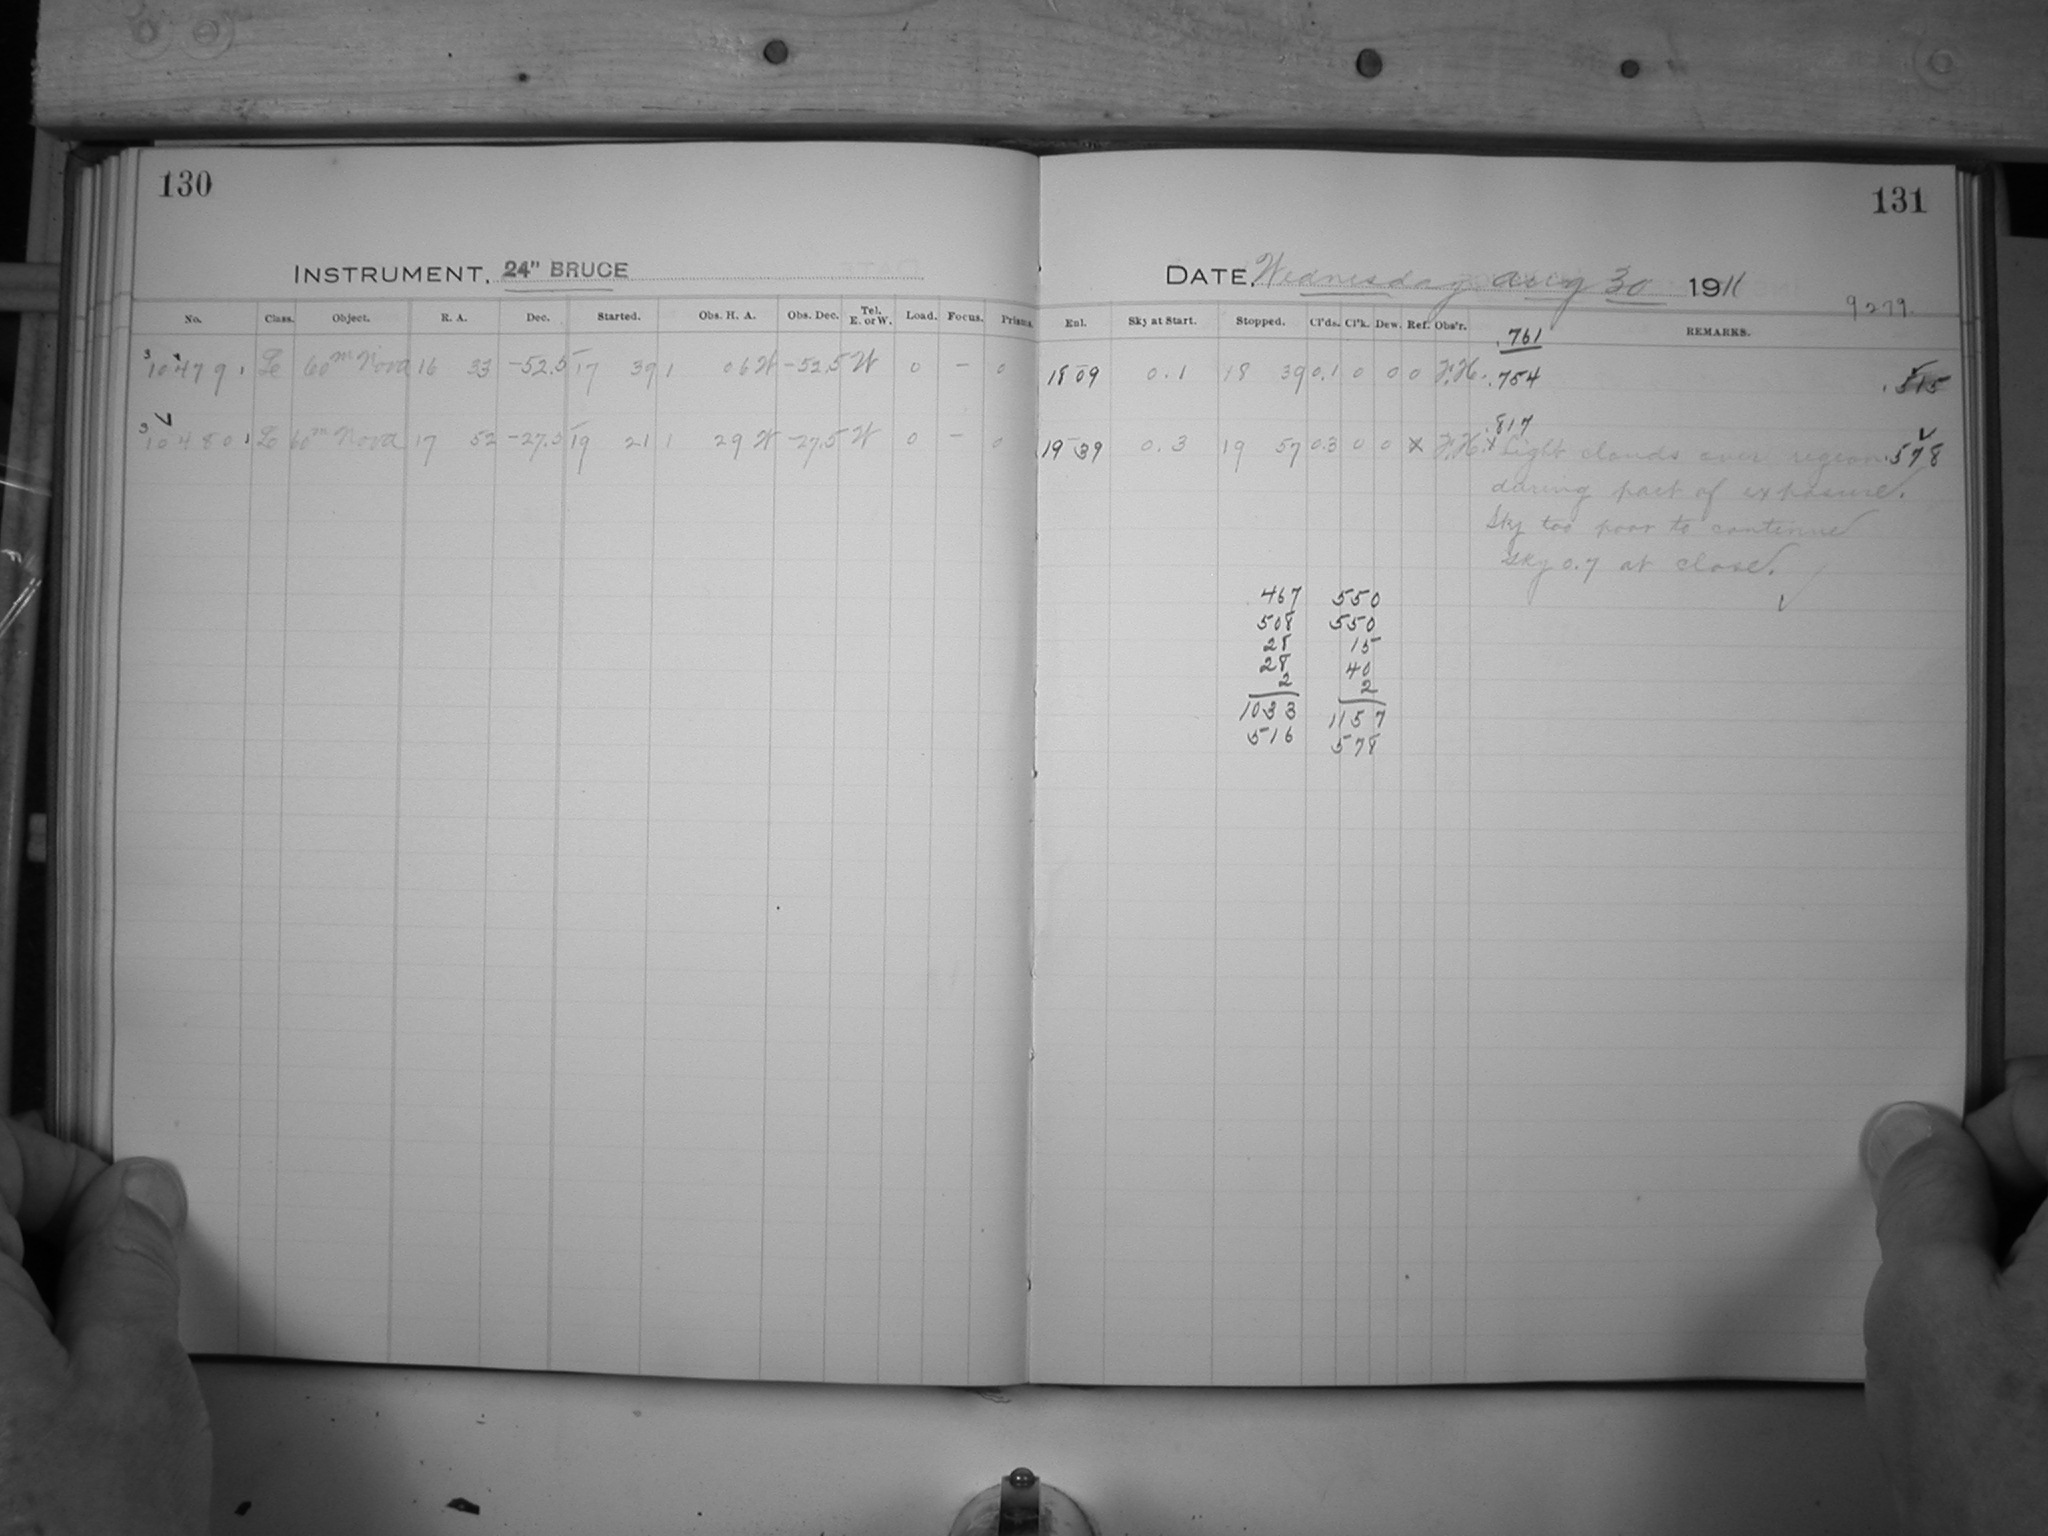 130
131
INSTRUMENT, 24" BRUCE
DATE, Wednesday Aug 30 1911
9279.
No. Class. Object. R. A. Dec. Started. Obs. H. A. Obs. Dec. Tel. E. or W. Load. Focus. Prisms. Enl. Sky at Start. Stopped. Cl'ds. Cl'k. Dew. Ref. Obs'r. REMARKS.
.761
3 10479 1 Le 60m Nova 16 33 -52.5 17 39 1 06 W -52.5 W 0 - 0 18 09 0.1 18 39 0.1 0 0 0 F.H. .754
.817
3 10480 1 Le 60m Nova 17 52 -27.5 19 21 1 29 W -27.5 W 0 - 0 19 39 0.3 19 57 0.3 0 0 x F.H. x Light clouds over region .578
during part of exposure.
Sky too poor to continue
Sky 0.7 at close.
467 550
508 550
28 15
28 40
2 2
1033 1157
516 578